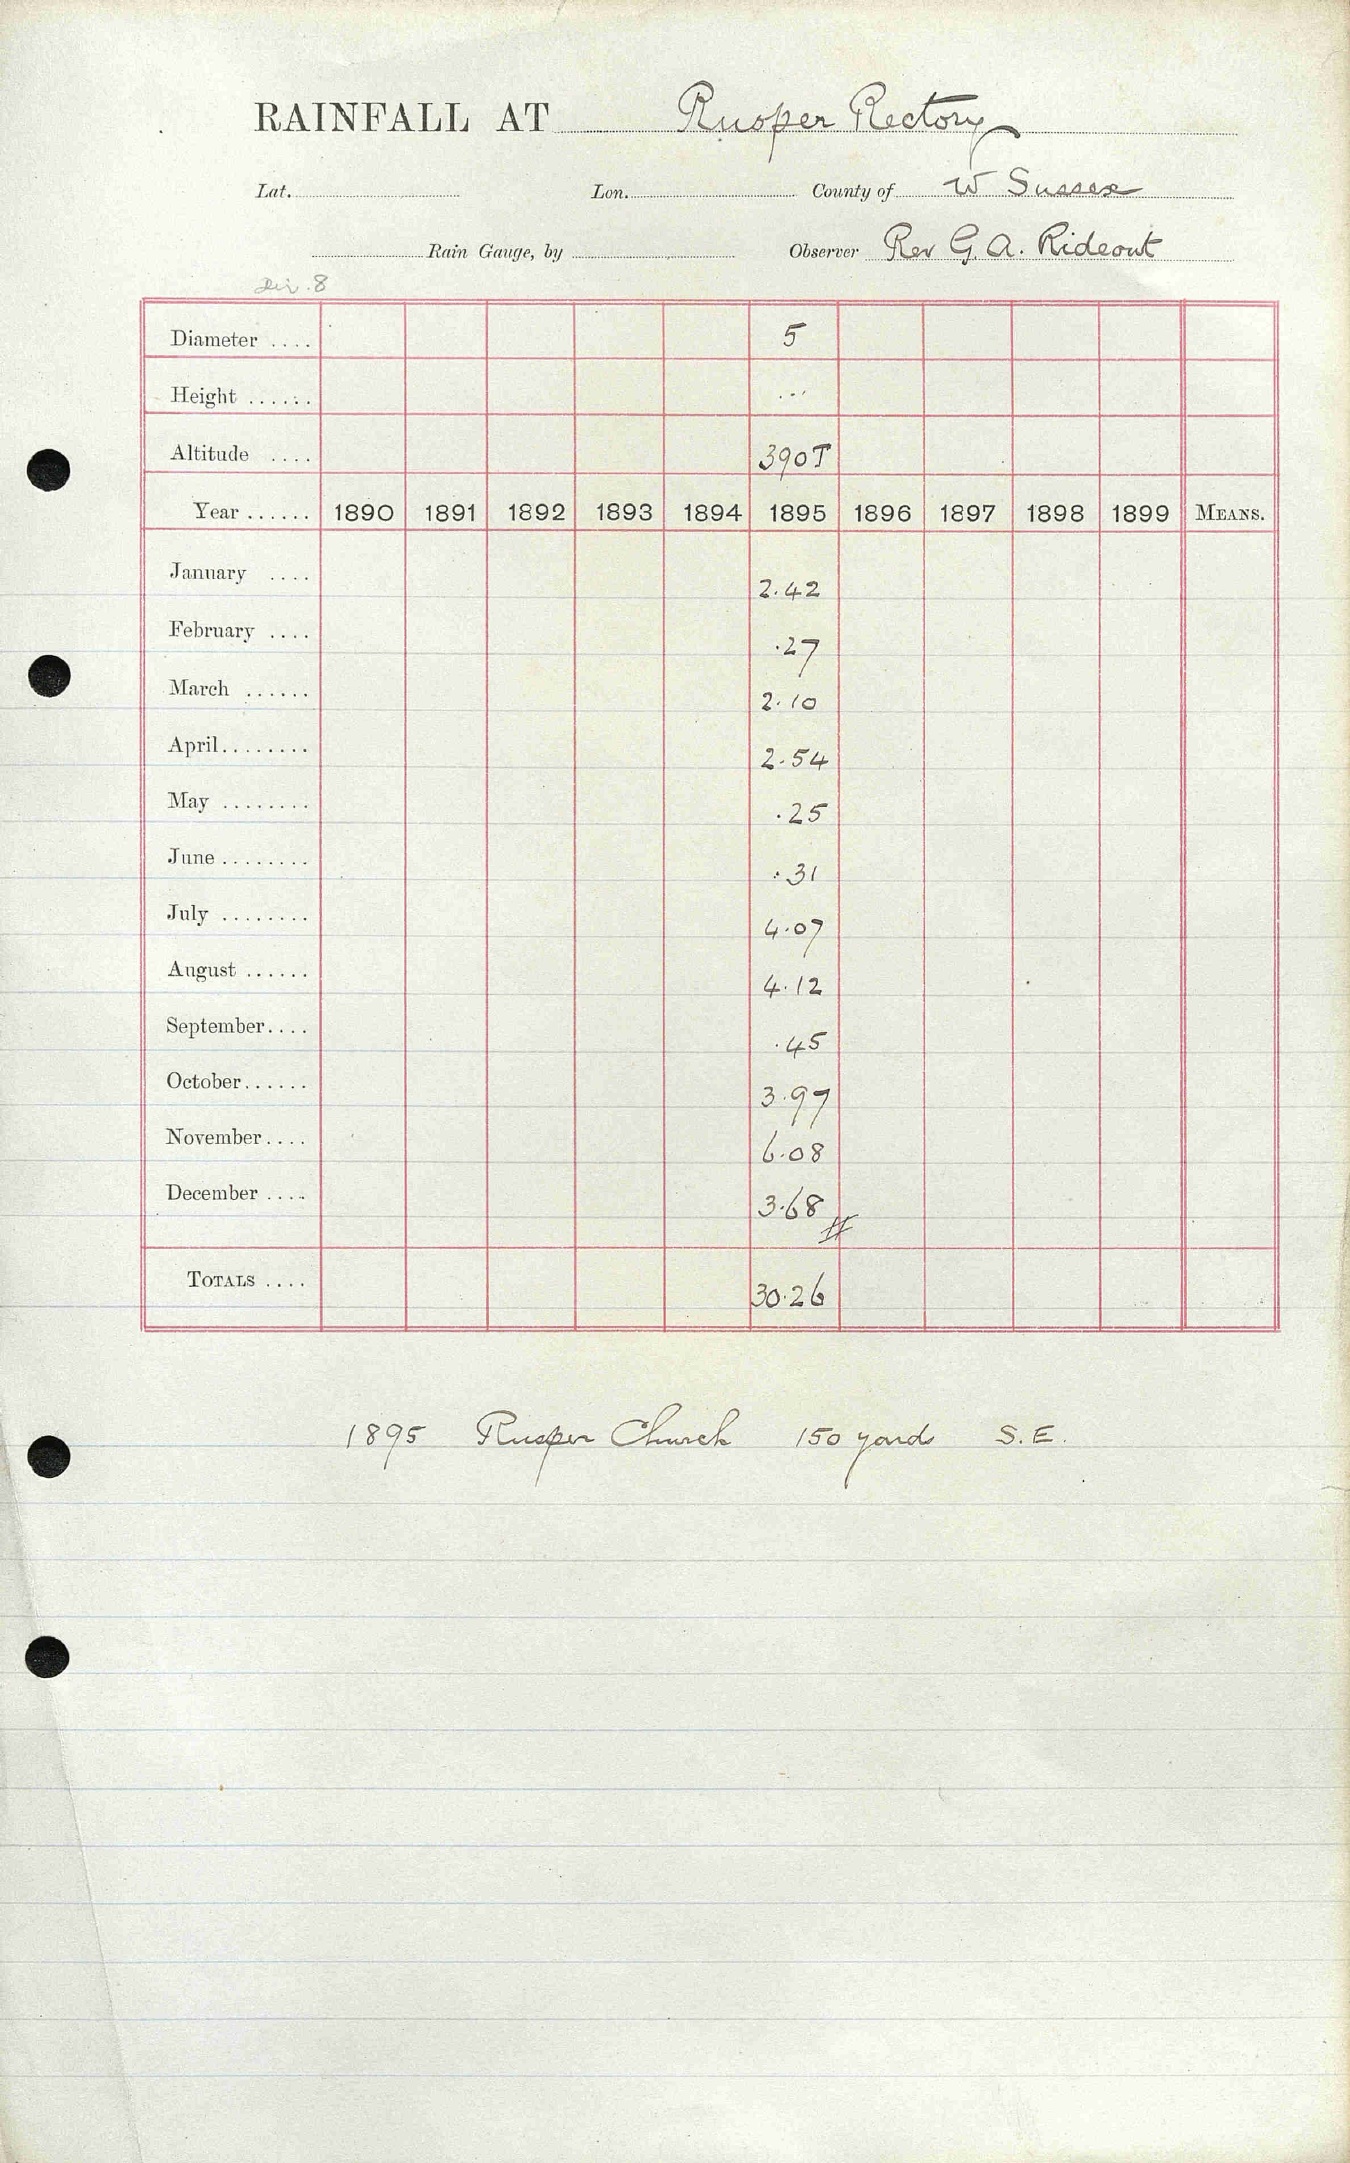 RAINFALL AT Rusper Rectory
Lat. Lon. County of W Sussex
Rain Gauge, by Observer Rev G. A. Rideout
Div. 8
Diameter .... 5
Height ...... ...
Altitude .... 390T
Year ...... 1890 1891 1892 1893 1894 1895 1896 1897 1898 1899 MEANS.
January .... 2.42
February .... .27
March ...... 2.10
April ........ 2.54
May ........ .25
June ........ .31
July ........ 4.07
August ...... 4.12
September .... .45
October ...... 3.97
November .... 6.08
December .... 3.68
TOTALS .... 30.26
1895 Rusper Church 150 yards S.E.